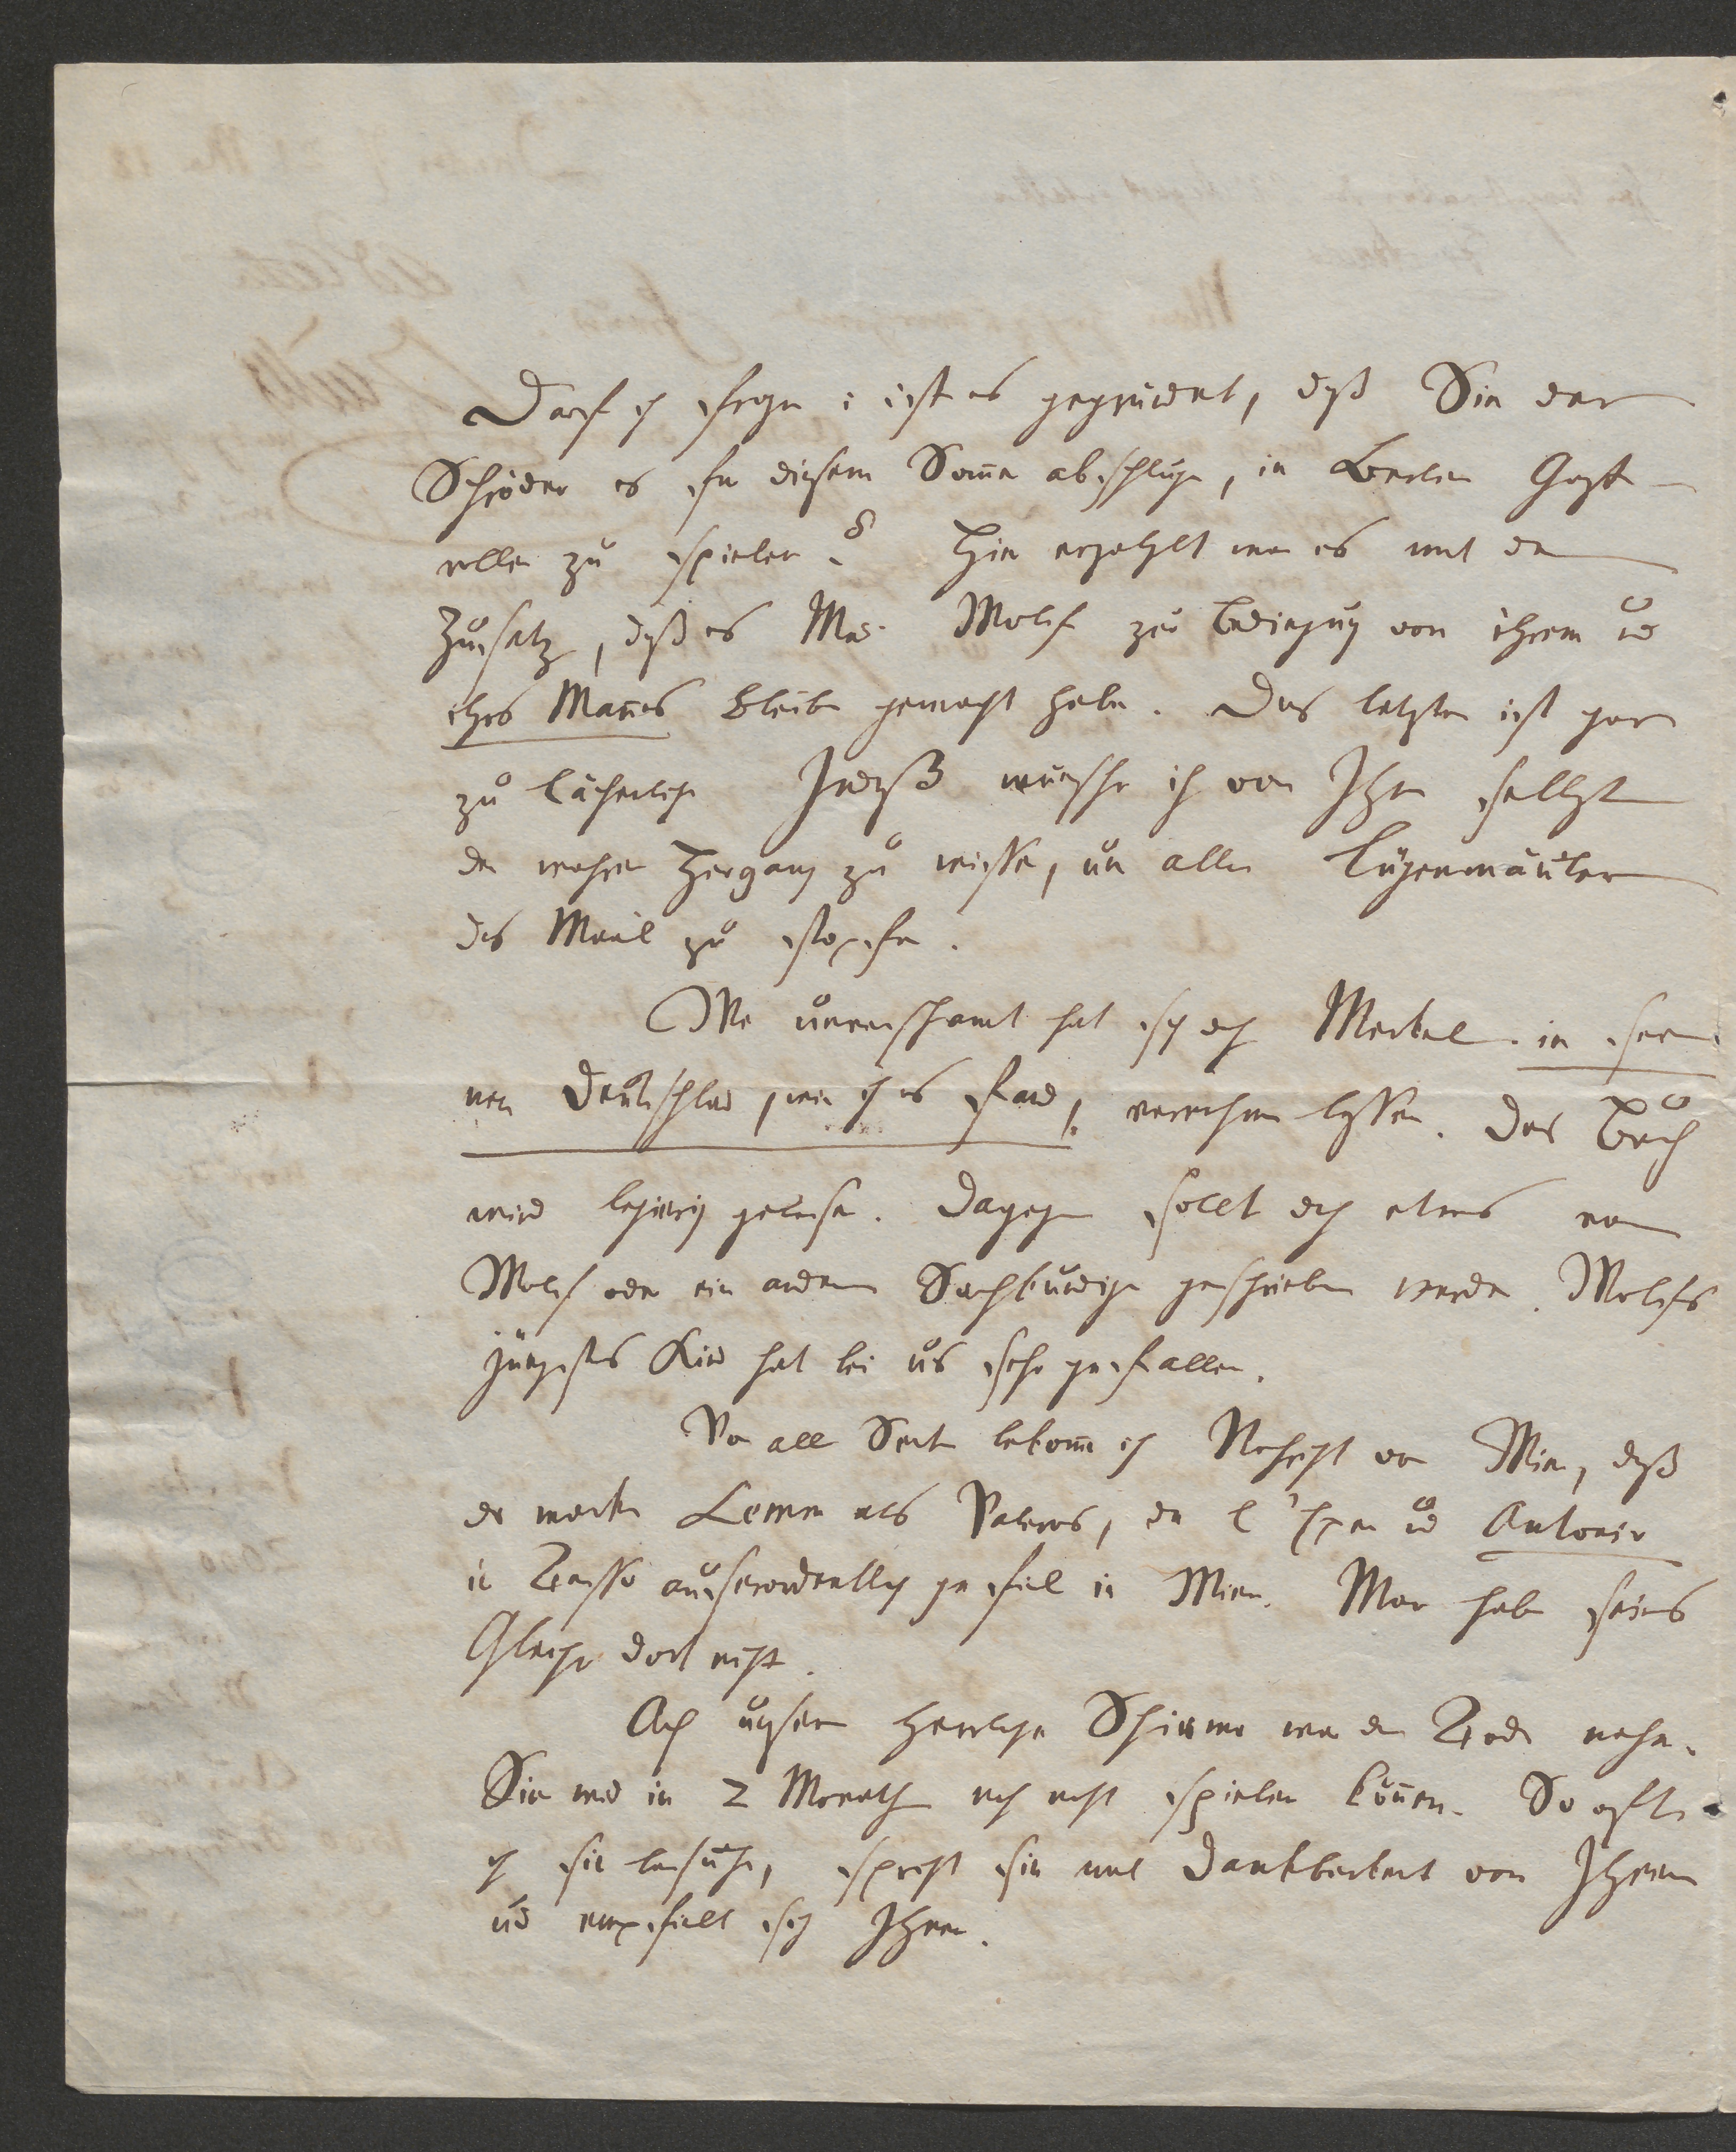 Darf ich fragen: ist es gegründet, daß Sie der
Schröder es für diesen Somer abschlugen, in Berlin Gast-
rollen zu spielen? Hier erzehlt man es mit dem
Zusatz, daß es Mad. Wolf zur Bedingung von ihrem und
ihres Mannes Bleiben gemacht habe. Das letztere ist gar
zu lächerlich. Indeß wünsche ich von Ihnen selbst
den wahren Hergang zu wissen, um allen Lügenmäulern
das Maul zu stopfen.
Wie unverschämt hat sich doch Merkel in sei-
nem Deutschland, wie ich es fand, vernehmen lassen. Das Buch
wird begierig gelesen. Dagegen sollte doch etwas von
Wolf oder ein andern Sachkundigen geschrieben werden. Wolfs
jüngstes Kind hat bei uns sehr gefallen.
Von allen Seiten bekomm ich Nachricht von Wien, daß
der wackre Lemm als Valeros, de l'Epee und Antonio
in Tasso außerordentlich gefiel in Wien. Man habe seines
Gleichen dort nicht.
Ach unsere herrliche Schirmer war dem Tode nahe.
Sie wird in 2 Monathen noch nicht spielen können. So oft
ich sie besuche, spricht sie mit Dankbarkeit von Ihnen
und empfielt sich Ihnen.